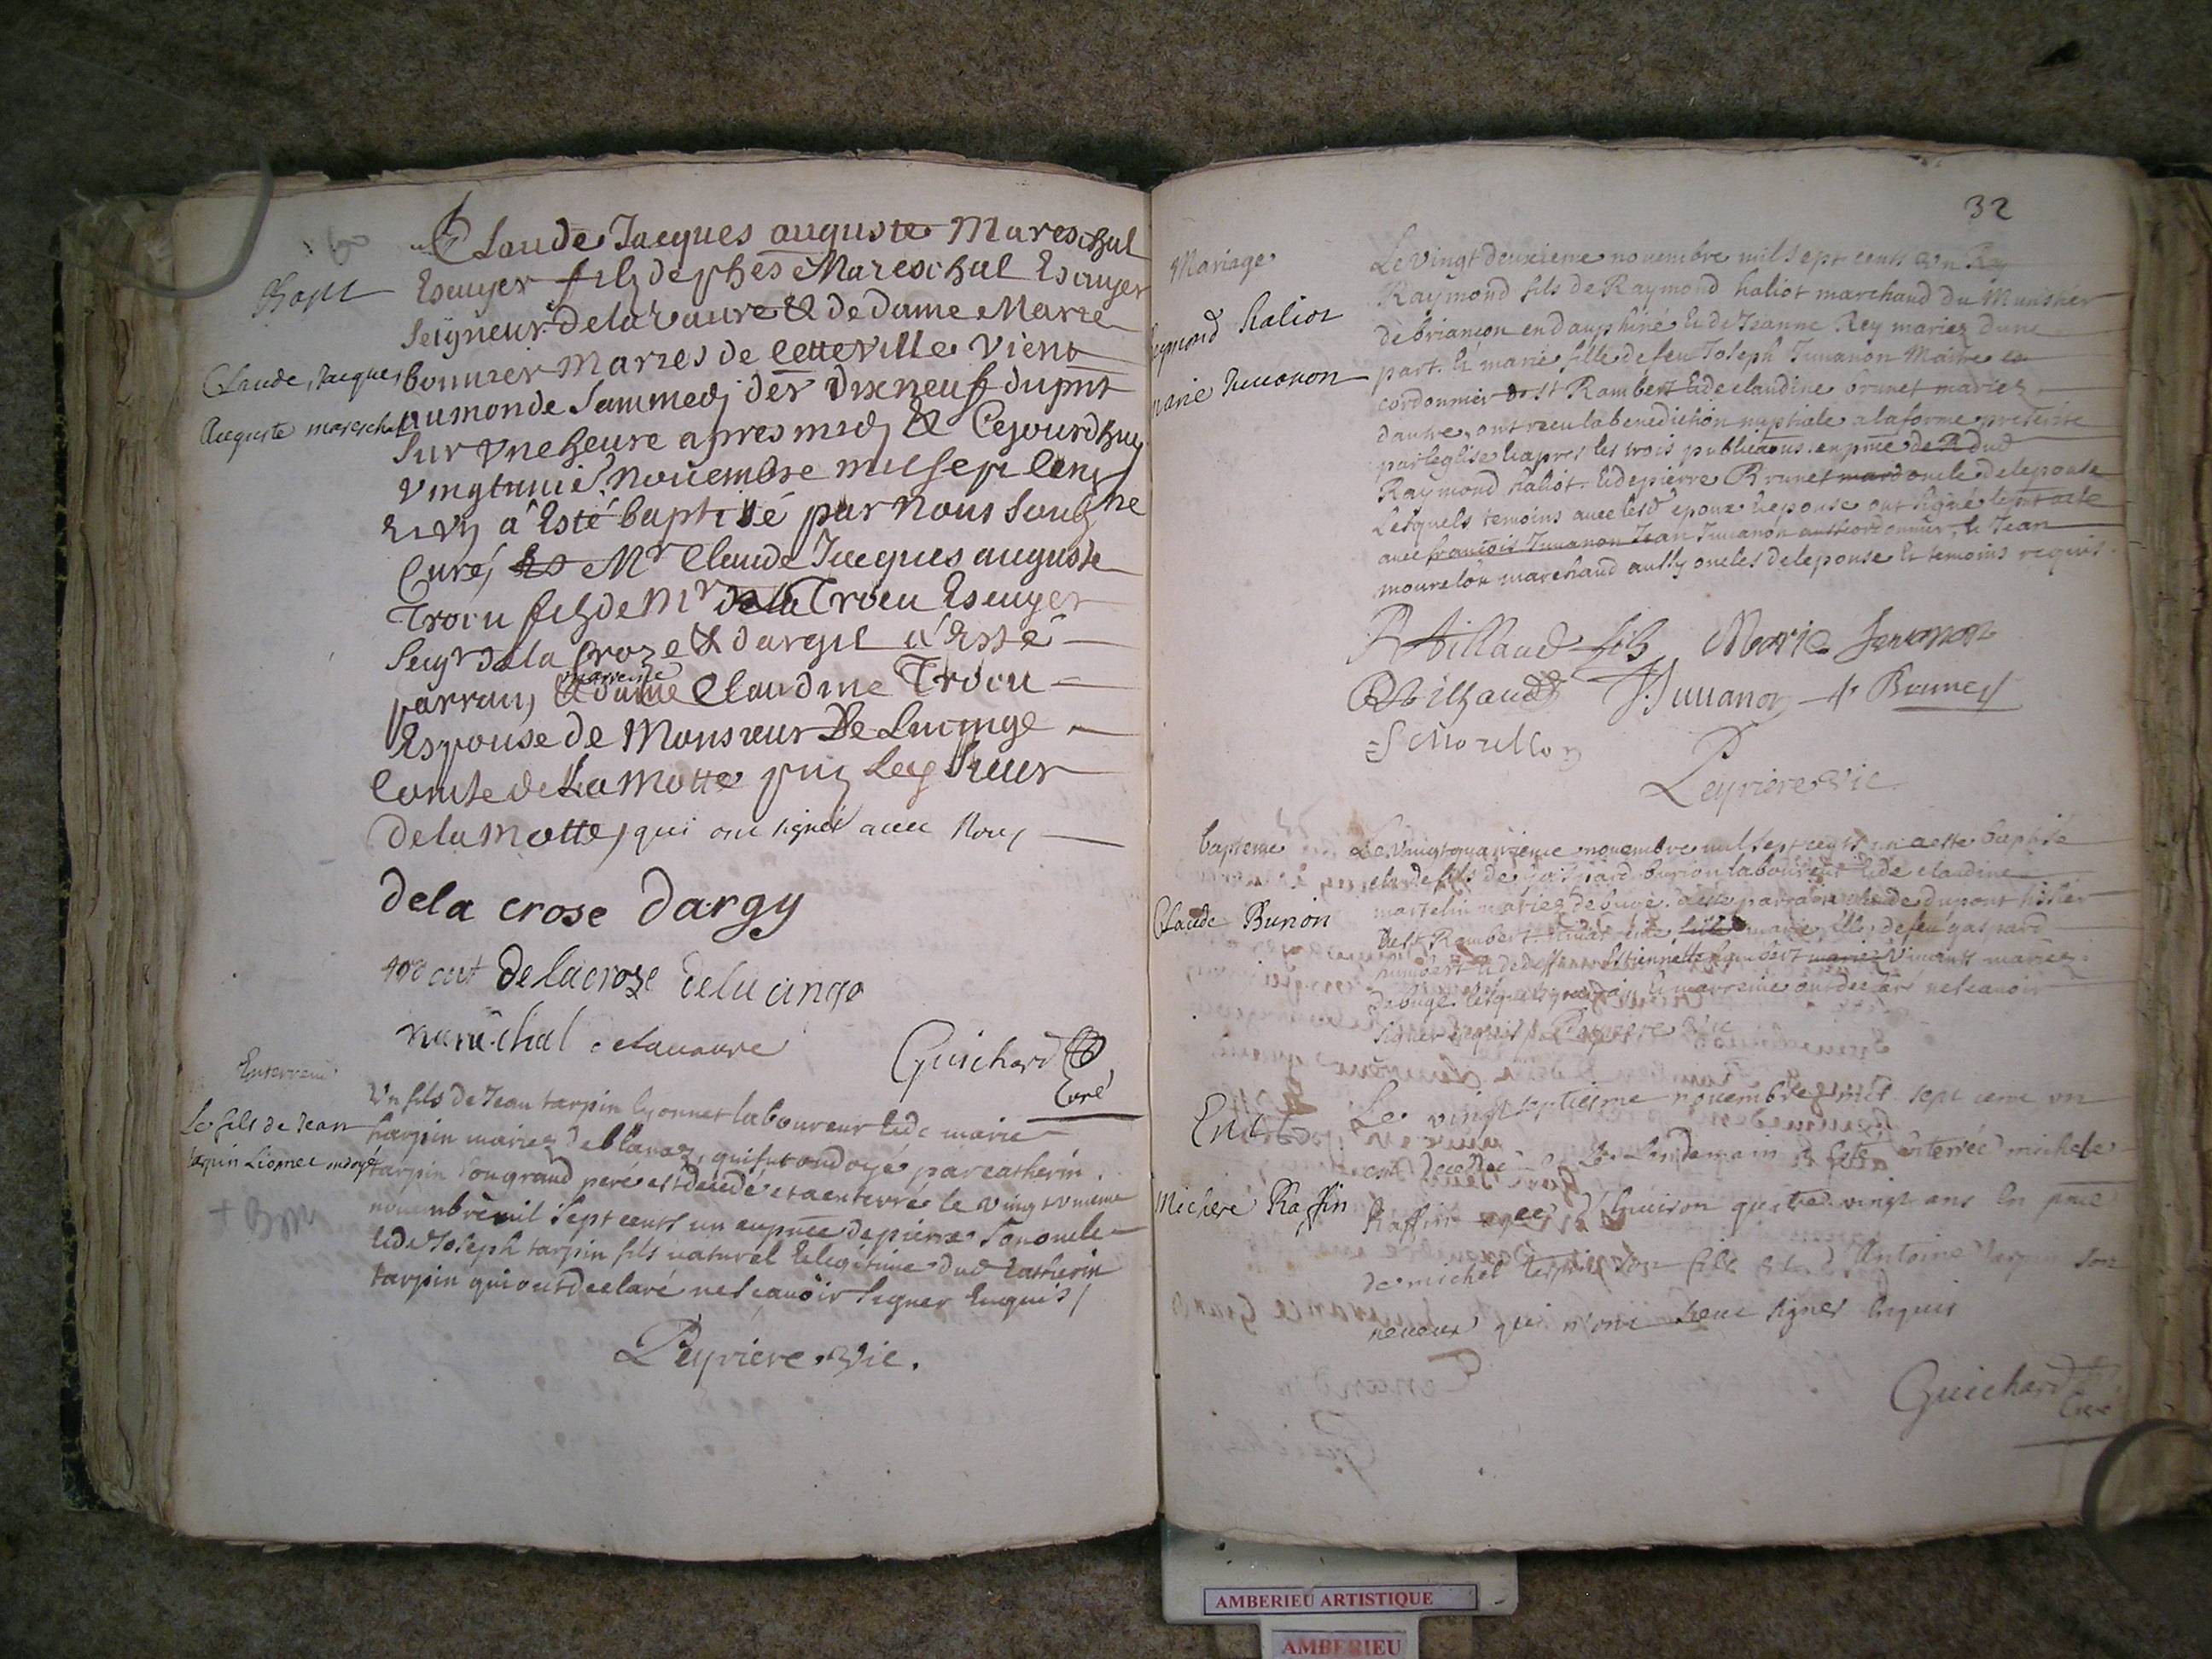 Bapt
Claude, Jacques
Auguste mareschal
Claude Jacques auguste Mareschal
Escuyer filz de phes Mareschal Escuyer
Seigneur dela Vavre & de dame Marie
bonnier Mariés de cette ville vient
au monde Sammedj der dix neuf du pnt
sur vne heure apres midj & Cejourdhuy
vingtunie novembre mil sept cens
& vn à Esté baptisé par nous soubsne
Curé, Mr Claude Jacques auguste
Trocu filz de Mr dela Trocu Escuyer
Seigr de la Croze & dargil a Esté
marreine
parrain, & dame Claudine Trocu
Espouse de Monsieur De Lucinge
Comte de La Motte
dela Motte, qui ont signés avec Nous
dela crose dargy
trocut delacroze delucinge
maréchal delavavre
Guichard
Curé
Enterremt
Le fils de Jean
tarpin Lionnet ondoyé
Un fils de Jean tarpin lyonnet laboureur & de marie
tarpin mariez de , qui fut ondoyé par catherin
tarpin son grand pere est decedé et a enterré le vingtunieme
novembre mil sept cents un en pnce de pierre son oncle
& de Joseph tarpin fils naturel & legitime dud Catherin
tarpin qui ont declaré ne scavoir signer Enquis /
Peyriere vic.
32
Mariage
Raymond haliot
marie Juvanon
Le vingt deuxieme novembre mil sept cents vn
Raymond fils de Raymond haliot marchand du Munestier
de briançon en dauphiné & de Jeanne Rey mariez dune
part. & marie fille de feu Joseph Juvanon Maitre
cordonnier de St Rambert & de claudine brunet mariez
dautre, ont receu la benediction nuptiale a la forme prescrite
par leglise & apres les trois publicaons. en pnce de dud
Raymond haliot. & de pierre Brunet mard oncle de lepouse
Lesquels temoins avec lesd epoux & epouse ont signé le pnt acte
avec françois Juvanon Jean Juvanon cordonnier, & Jean
mourelon marchand aussy oncles de lepouse & temoins requis.
fils Marie Juvanon
Juvanon p. Brunet
Peyriere vic
bapteme
Claude Burion
Le Vingtquatrieme novembre mil sept cents un a esté baptisé
claude fils de gaspard burion laboureur & de claudine
martelin mariez de . parrain claude dupont
de St Rambert marie fille de feu gaspard
humbert & de deffunte Estiennette vincent mariez
lesquels parrain & marreine ont declaré ne scavoir
signer Enquis / Peyriere vic
Ent
Michere Raffin
Le vingt septiesme novembre mil sept cent un
est decedée & Le Lendemain a Esté enterrée michele
Raffin agée d'Environ quatre vingt ans En pnce
de michel son fils & d' Antoine tarpin son
neveux qui n'ont sceu signer Enquis
Guichard
Curé
AMBERIEU ARTISTIQUE
AMBERIEU